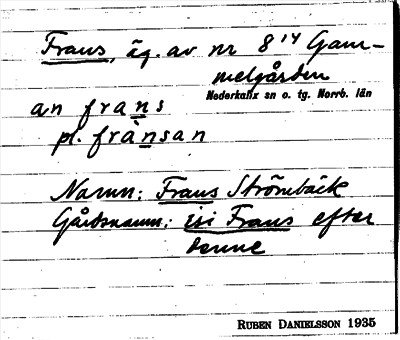 Frans, äg. av nr 8¹⁴ Gam-
melgården
Nederkalix sn o. tg. Norrb. län
an frans
pl. frànsan
Namn: Frans Strömbäck
Gårdsnamn: isi Frans efter
denne
RUBEN DANIELSSON 1935